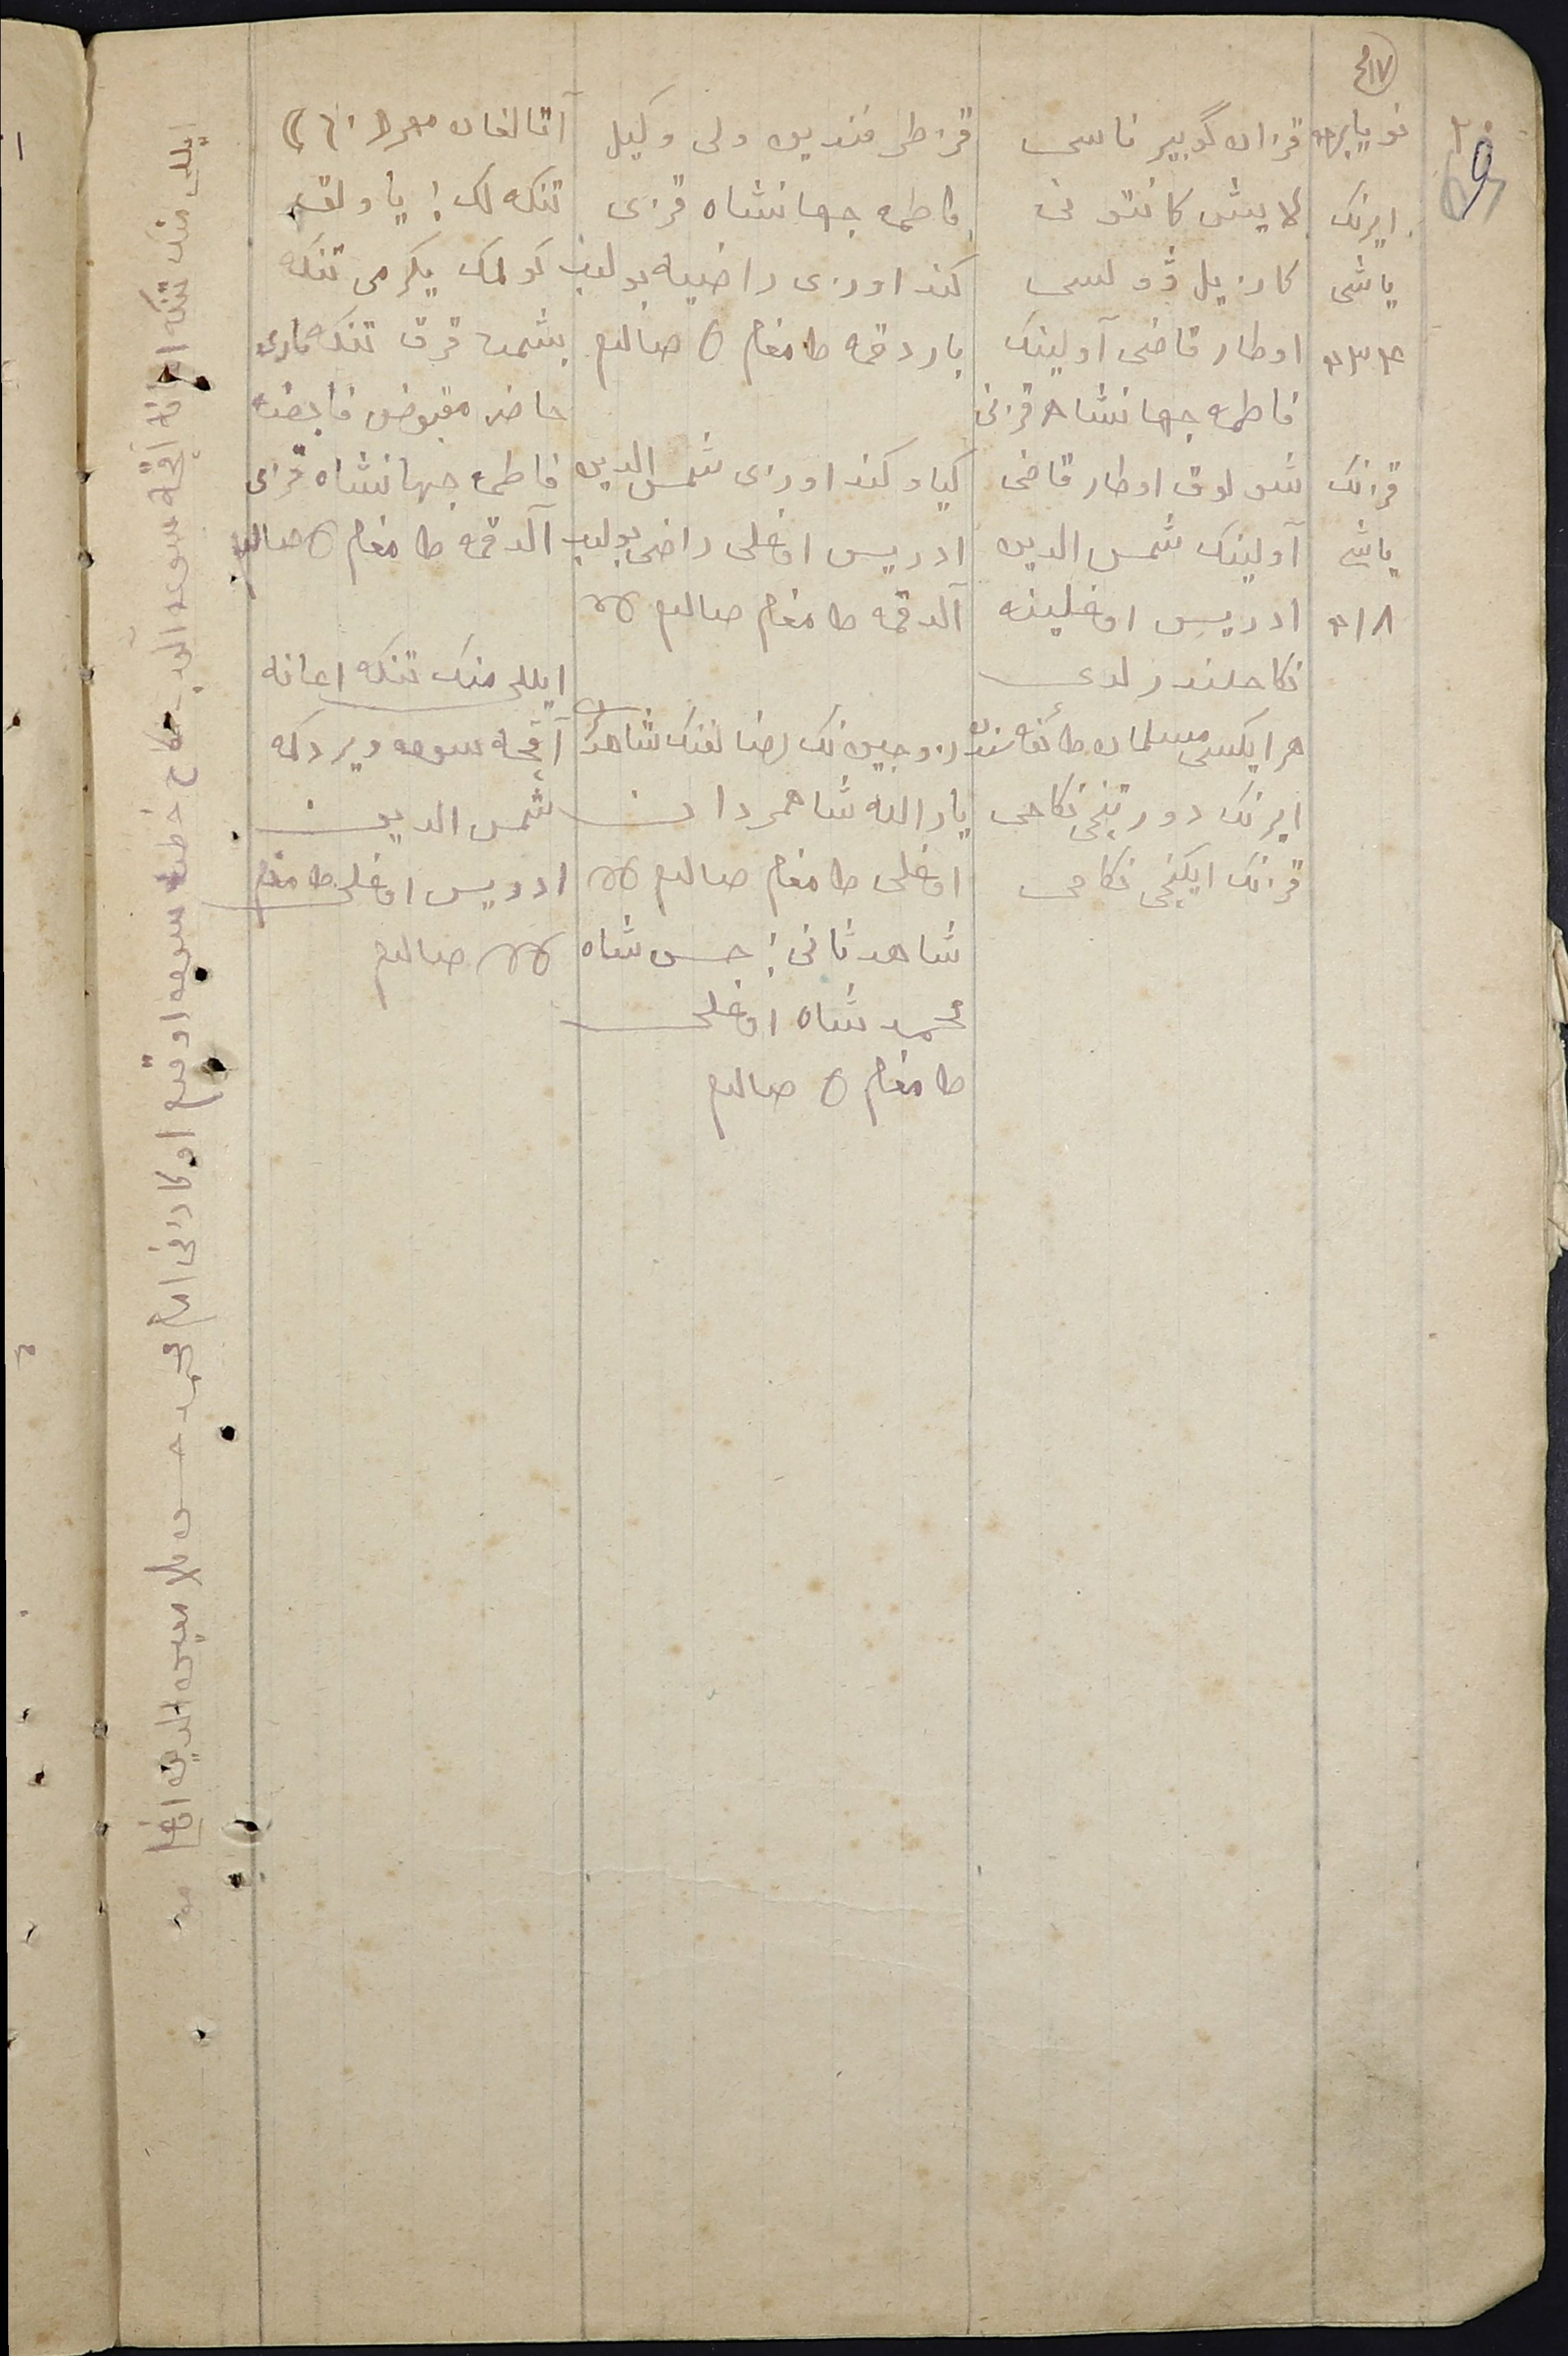 ١٧
نویابر
ایرنک
یاشی
٤٣٤
قزنک
یاشی
٤١٨
قزان گوبیرناسی
لایش کانتونی
کازیل ڤولسی
اوطار قاضی آولینک
فاطمه جهانشاه قزنی
شولوق اوطار قاضی
آولینک شمس الدین
ادریس اوغلینه
نکاحلندرلدی
هر ایکسی مسلمان طائفه سندن
ایرنک دورتنجی نکاحی
قزنک ایکنجی نکاحی
قز طرفندین ولی وکیل
فاطمه جهانشاه قزی
کند اوزی راضیه بولب
باردقمه طامغام صالدم
کیاو کند اوزی شمس الدین
ادریس اوغلی راضی بولب
آلدقمه طامغام صالدم
زوجین نک رضالغنک شاهدلری
یارالله شاهمردان
اوغلی طامغام صالدم
شاهد ثانی: حسن شاه
محمد شاه اوغلی
طامغام صالدم
آتالغان مهر
تنکه لک: یاولق
کولمک یکرمی تنکه
بشمت قرق تنکه
حاضر مقبوض
فاطمه جهانشاه قزی
آلدقمه طامغام صالدم
ایللی منک تنکه اعانه
آقچه سون ویردکمه
شمس الدین
ادریس اوغلی طامغام
صالدم
ایللی منک تنکه اعانه آقچه سون آلدب نکاح خطبه سون اوقیم اوکازنی امام محمد حسن ملا